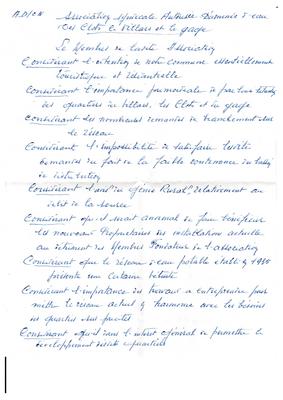 Association Syndicale Autorisée Domaine d'eau
Les Clots le Villars et la gaffe
Le Membres de la dite Association
Considérant l'extention de notre commune essentiellement
touristique et résidentielle
Considérant l'importance primordiale de par leur
des quartiers de Villars, les Clots et la gaffe
Considérant les nombreuses demandes de branchement sur
le réseau
Considérant l'impossibilité de satisfaire
demandes du fait de la faible contenance du bassin
de
Considérant l'avis du génie Rural relativement au
débit de la source
Considérant qu'il serait anormal de faire bénéficier
les nouveaux Propriétaires des installations actuelles
au détriment des Membres fondateurs de l'association
Considérant que le réseau d'eau potable établi en 1955
présente une certaine
Considérant l'importance des travaux à entreprendre pour
mettre le réseau actuel en harmonie avec les besoins
des quartiers
Considérant qu'il dans l'intérêt général de permettre le
développement quartiers